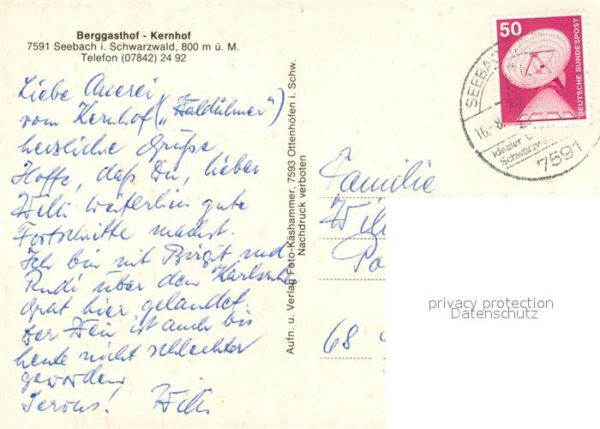 Berggasthof - Kernhof
7591 Seebach i. Schwarzwald, 800 m ü. M.
Telefon (07842) 24 92
Liebe
vom Kernhof
herzliche Grüße
Hoffe, daß Du, lieber
Willi weiterhin gute
Fortschritte machst.
Ich bin mit Birgit und
Rudi über den Karlsruher
Grat hier gelandet.
Der Wein ist auch bis
heute nicht schlechter
geworden,
Servus! Willi
Aufn. u. Verlag Foto-Käshammer, 7593 Ottenhöfen i. Schw.
Nachdruck verboten
50
DEUTSCHE BUNDESPOST
SEEBA
16.-8.
Schwarzw
7591
Familie
Wil
Po
68
privacy protection
Datenschutz